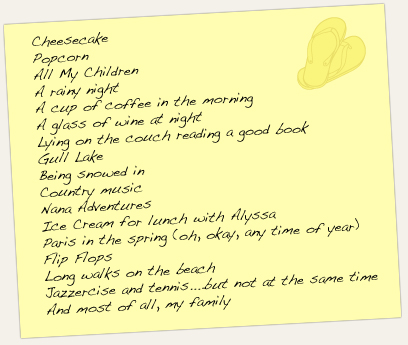 Cheesecake
Popcorn
All My Children
A rainy night
A cup of coffee in the morning
A glass of wine at night
Lying on the couch reading a good book
Gull Lake
Being snowed in
Country music
Nana Adventures
Ice Cream for lunch with Alyssa
Paris in the spring (oh, okay, any time of year)
Flip Flops
Long walks on the beach
Jazzercise and tennis....but not at the same time
And most of all, my family